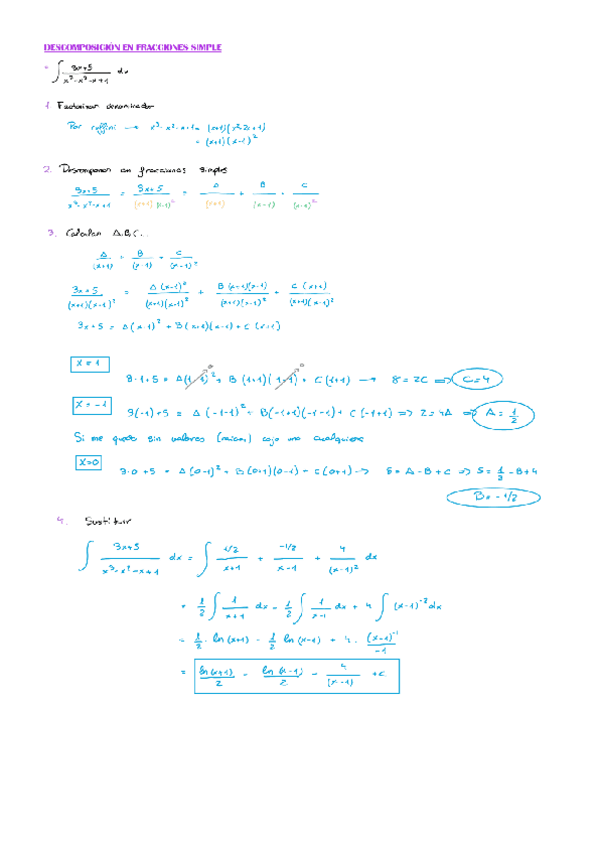 DESCOMPOSICIÓN EN FRACCIONES SIMPLE
* ∫ 3x+5 / x³-x²-x+1 dx
1 Factorizar denominador
Por ruffini → x³-x²-x+1= (x+1)(x²-2x+1)
= (x+1)(x-1)²
2. Descomponer en fracciones simples
3x+5 / x³-x²-x+1 = 3x+5 / (x+1)(x-1)² = A / (x+1) + B / (x-1) + C / (x-1)²
3. Calcular A,B,C...
A / (x+1) + B / (x-1) + C / (x-1)²
3x+5 / (x+1)(x-1)² = A(x-1)² / (x+1)(x-1)² + B(x+1)(x-1) / (x+1)(x-1)² + C(x+1) / (x+1)(x-1)²
3x+5 = A(x-1)² + B(x+1)(x-1) + C(x+1)
x=1
3·1+5 = A(1-1)² + B(1+1)(1-1) + C(1+1) → 8=2C ⇒ C=4
x=-1
3(-1)+5 = A(-1-1)² + B(-1+1)(-1-1) + C(-1+1) ⇒ 2=4A ⇒ A=1/2
Si me quedo sin valores (raices) cojo uno cualquiera
x=0
3·0+5 = A(0-1)² + B(0+1)(0-1) + C(0+1) → 5=A-B+C ⇒ 5=1/2-B+4
B=-1/2
4. Sustituir
∫ 3x+5 / x³-x²-x+1 dx = ∫ 1/2 / x+1 + -1/2 / x-1 + 4 / (x-1)² dx
= 1/2 ∫ 1 / x+1 dx - 1/2 ∫ 1 / x-1 dx + 4 ∫ (x-1)⁻² dx
= 1/2 · ln(x+1) - 1/2 ln(x-1) + 4 · (x-1)⁻¹ / -1
= ln(x+1) / 2 - ln(x-1) / 2 - 4 / (x-1) +c